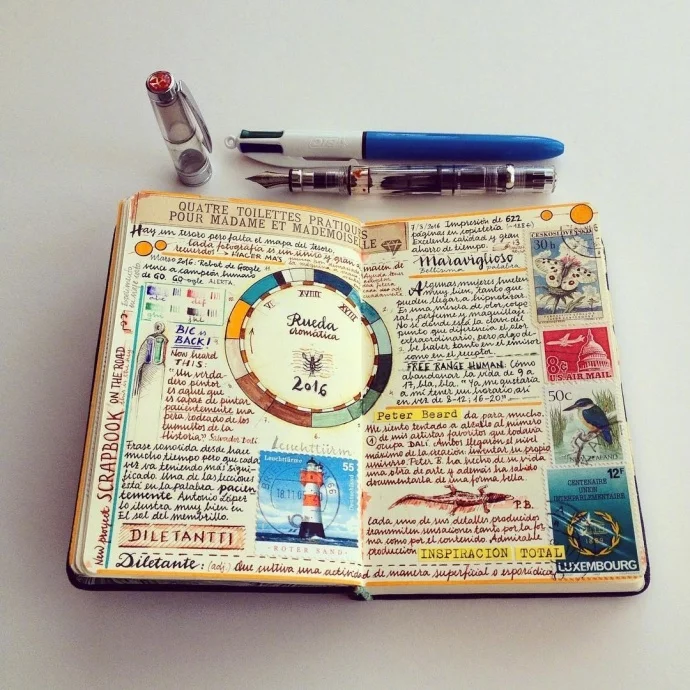 BIC
QUATRE TOILETTES PRATIQUES
POUR MADAME ET MADEMOISELLE
Hay un tesoro pero falta el mapa del tesoro.
Cada fotografía es un único y gran
recuerdo → HACER MAS
Marzo 2016: Robot de Google
vence a campeón humano
de GO. GO-ogle ALERTA.
BIC is
BACK!
Now heard
THIS:
"Un verda-
dero pintor
es aquel que
es capaz de pintar
pacientemente una
pera rodeado de los
tumultos de la
Historia." Salvador Dalí.
Frase conocida desde hace
mucho tiempo pero que cada
vez va teniendo más signi-
ficado. Una de las lecciones
está en la palabra pacien-
temente. Antonio López
lo ilustra muy bien en
El sol del membrillo.
DILETANTTI
Diletante: (adj.) Que cultiva una actividad de manera superficial o esporádica
SCRAPBOOK ON THE ROAD
project
VI
XVIII
XVIII
Rueda
cromática
2016
Leuchtturm
Leuchttürme
55
ROTER SAND
7/3/2016 Impresión de 622
páginas en copistería
Excelente calidad y gran
ahorro de tiempo.
Maraviglioso
Bellissima palabra
Algunas mujeres huelen
muy bien, tanto que
pueden llegar a hipnotizar.
Es una mezcla de olor corpo-
ral, perfume y maquillaje.
No sé dónde está la clave del
punto que diferencia el olor
extraordinario, pero algo de-
be haber tanto en el emisor
como en el receptor.
FREE RANGE HUMAN: Cómo
abandonar la vida de 9 a
17, bla, bla. "Ya me gustaría
a mí tener un horario así
en vez de 8-12; 16-20"
Peter Beard da para mucho.
Me siento tentado a alzarlo al número
1 de mis artistas favoritos que todavía
ocupa DALÍ. Ambos llegaron al nivel
máximo de la creación: inventar su propio
universo. Peter B. ha hecho de su vida
una obra de arte y además ha sabido
documentarla de una forma bella.
P.B.
Cada uno de sus detalles producidos
transmiten sensaciones tanto por la for-
ma como por el contenido. Admirable
producción INSPIRACION TOTAL
ČESKOSLOVENSKO
30h
8c
U.S. AIR MAIL
50c
NEW ZEALAND
12F
CENTENAIRE
UNION
INTERPARLEMENTAIRE
LUXEMBOURG